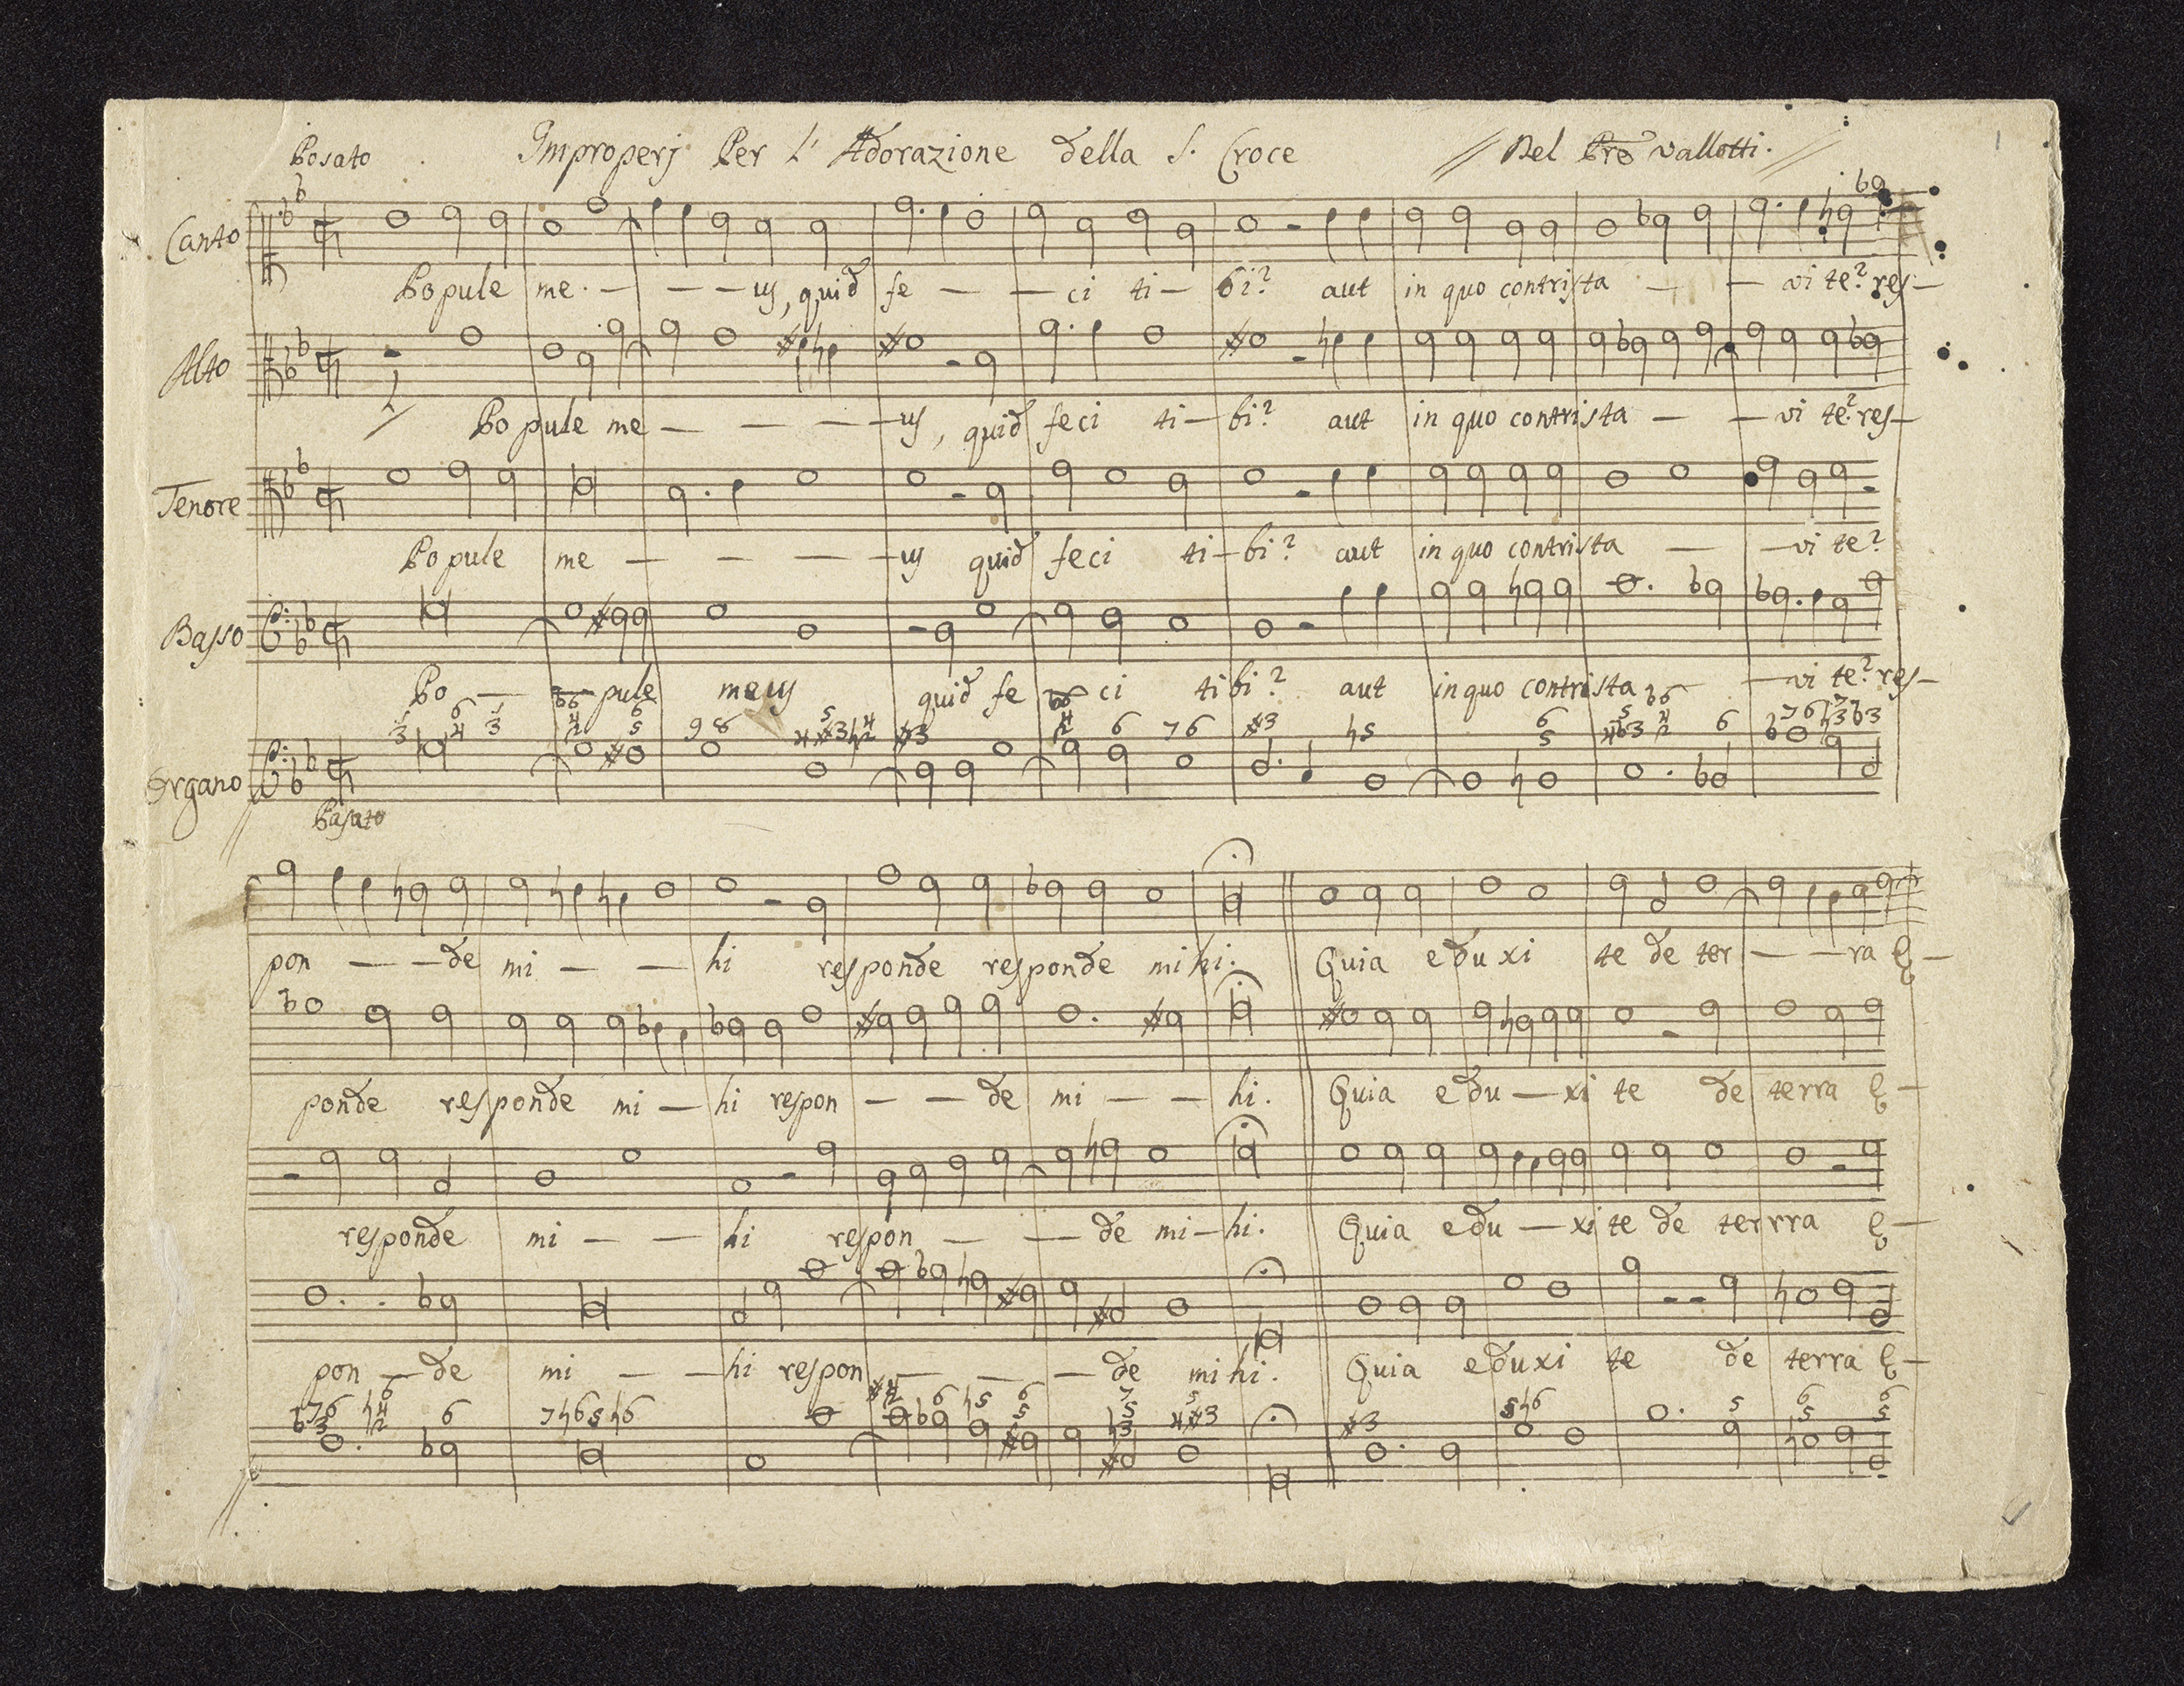 Posato Improperj Per L' Adorazione della S. Croce // Del Pre Vallotti. // 1
Canto
Popule me - - - - us, quid fe - - - ci ti - bi? aut in quo contrista - - vi te? res -
Alto
Popule me - - - - us, quid feci ti - bi? aut in quo contrista - - vi te? res -
Tenore
Popule me - - - - us quid feci ti - bi? aut in quo contrista - - vi te?
Basso
Po - - pule meus quid fe - ci ti bi? aut in quo contrista - vi te? res -
Organo
Posato
pon - - - de mi - - - hi responde responde mihi. Quia eduxi te de ter - - - ra E -
ponde responde mi - hi respon - - - de mi - - - hi. Quia edu - xi te de terra E -
responde mi - - - hi respon - - - de mi - hi. Quia edu - xi te de terrra E -
pon - de mi - - hi respon - - - de mihi. Quia eduxi te de terra E -